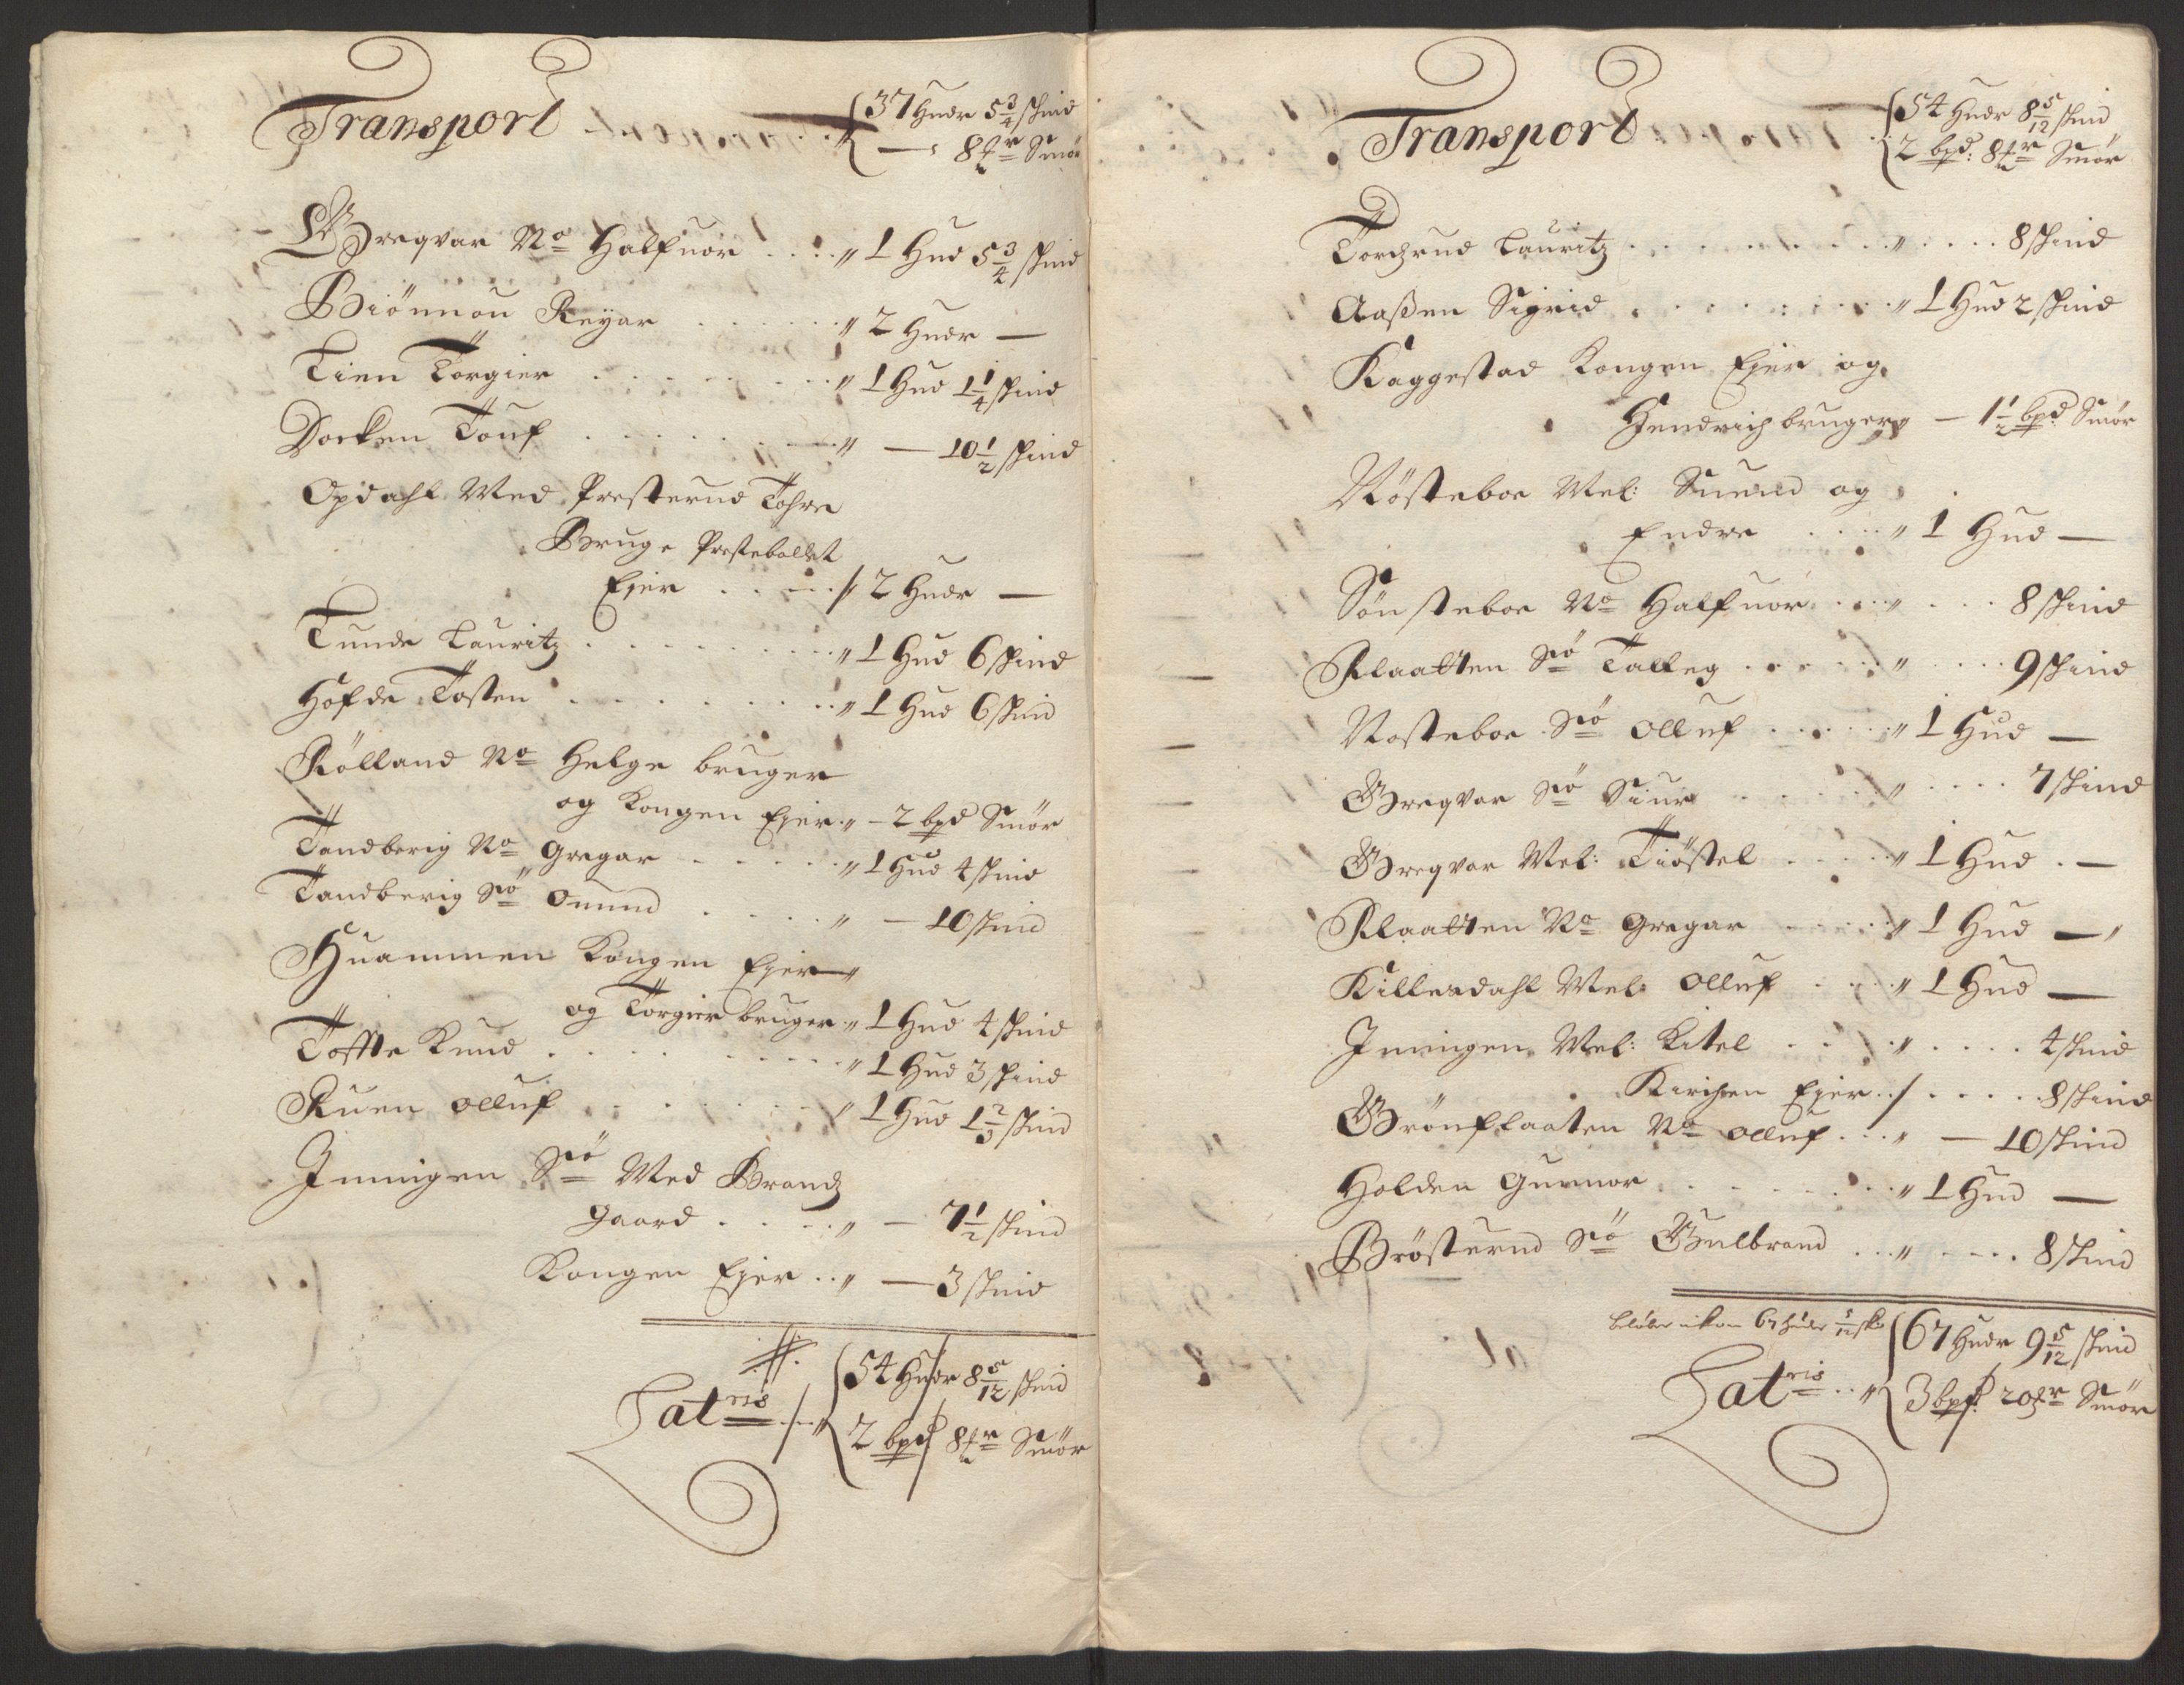 Transport 37 Huder 5 3/4 skind
— 8 tr Smör
Bregvar No Halfuor . . . " 1 Hud 5 3/4 skind
Biönnou Reyar . . . . . " 2 Huder —
Lien Törgier . . . . . " 1 Hud 1 1/4 skind
Docken Touf . . . . . " — 10 1/2 skind
Opdahl Med Presterud Tohre
Bruge Prestebollet
Ejer . . . . 2 Huder —
Tunde Lauritz . . . . . " 1 Hud 6 skind
Hofde Tosten . . . . . " 1 Hud 6 skind
Rölland No Helge bruger
og Kongen Ejer " — 2 bpd Smör
Tandberig No Gregar . . . . " 1 Hud 4 skind
Tandberig Sö Omund . . . . " — 10 skind
Huammen Kongen Ejer "
og Törgier bruger " 1 Hud 4 skind
Toffte Knud . . . . . " 1 Hud 3 skind
Ruen Olluf . . . . . " 1 Hud 1 2/3 skind
Juuigen Sö Med Brandz
gaard . . . . " — 7 1/2 skind
Kongen Ejer . . " — 3 skind
Latris 54 Huder 8 5/12 skind
2 bpd 8 tr Smör
Transport 54 Huder 8 5/12 skind
2 bpd: 8 tr Smör
Torchrud Lauritz . . . . . " . . . . 8 skind
Aaßen Sigrid . . . . . " 1 Hud 2 skind
Kaggestad Kongen Ejer og
Hendrich bruger " — 1 1/2 bpd Smör
Nösteboe Mel: Suend og
Endre . . . " 1 Hud —
Sönsteboe No Halfuor . . . " . . . 8 skind
Klaatten Sö Talleg . . . . . " . . . . 9 skind
Nosteboe Sö Olluf . . . . . " 1 Hud —
Bregvar Sö Siur . . . . " . . . . 7 skind
Bregvar Mel: Tiöstel . . . . " 1 Hud . —
Klaatten No Gregar . . . . " 1 Hud — "
Killesdahl Mel: Olluf . . . . " 1 Hud —
Juuigen Mel: Kitel . . . " . . . . 4 skind
Kirchen Ejer . . . . . . 8 skind
Grönflaaten No Olluf . . . " — 10 skind
Holden Gunnor . . . . . " 1 Hud —
Brösterud Sö Gulbrand . . . " . . . . 8 skind
67 Huder 9 5/12 skind
Latris . . " 3 bpd: 20 tr Smör